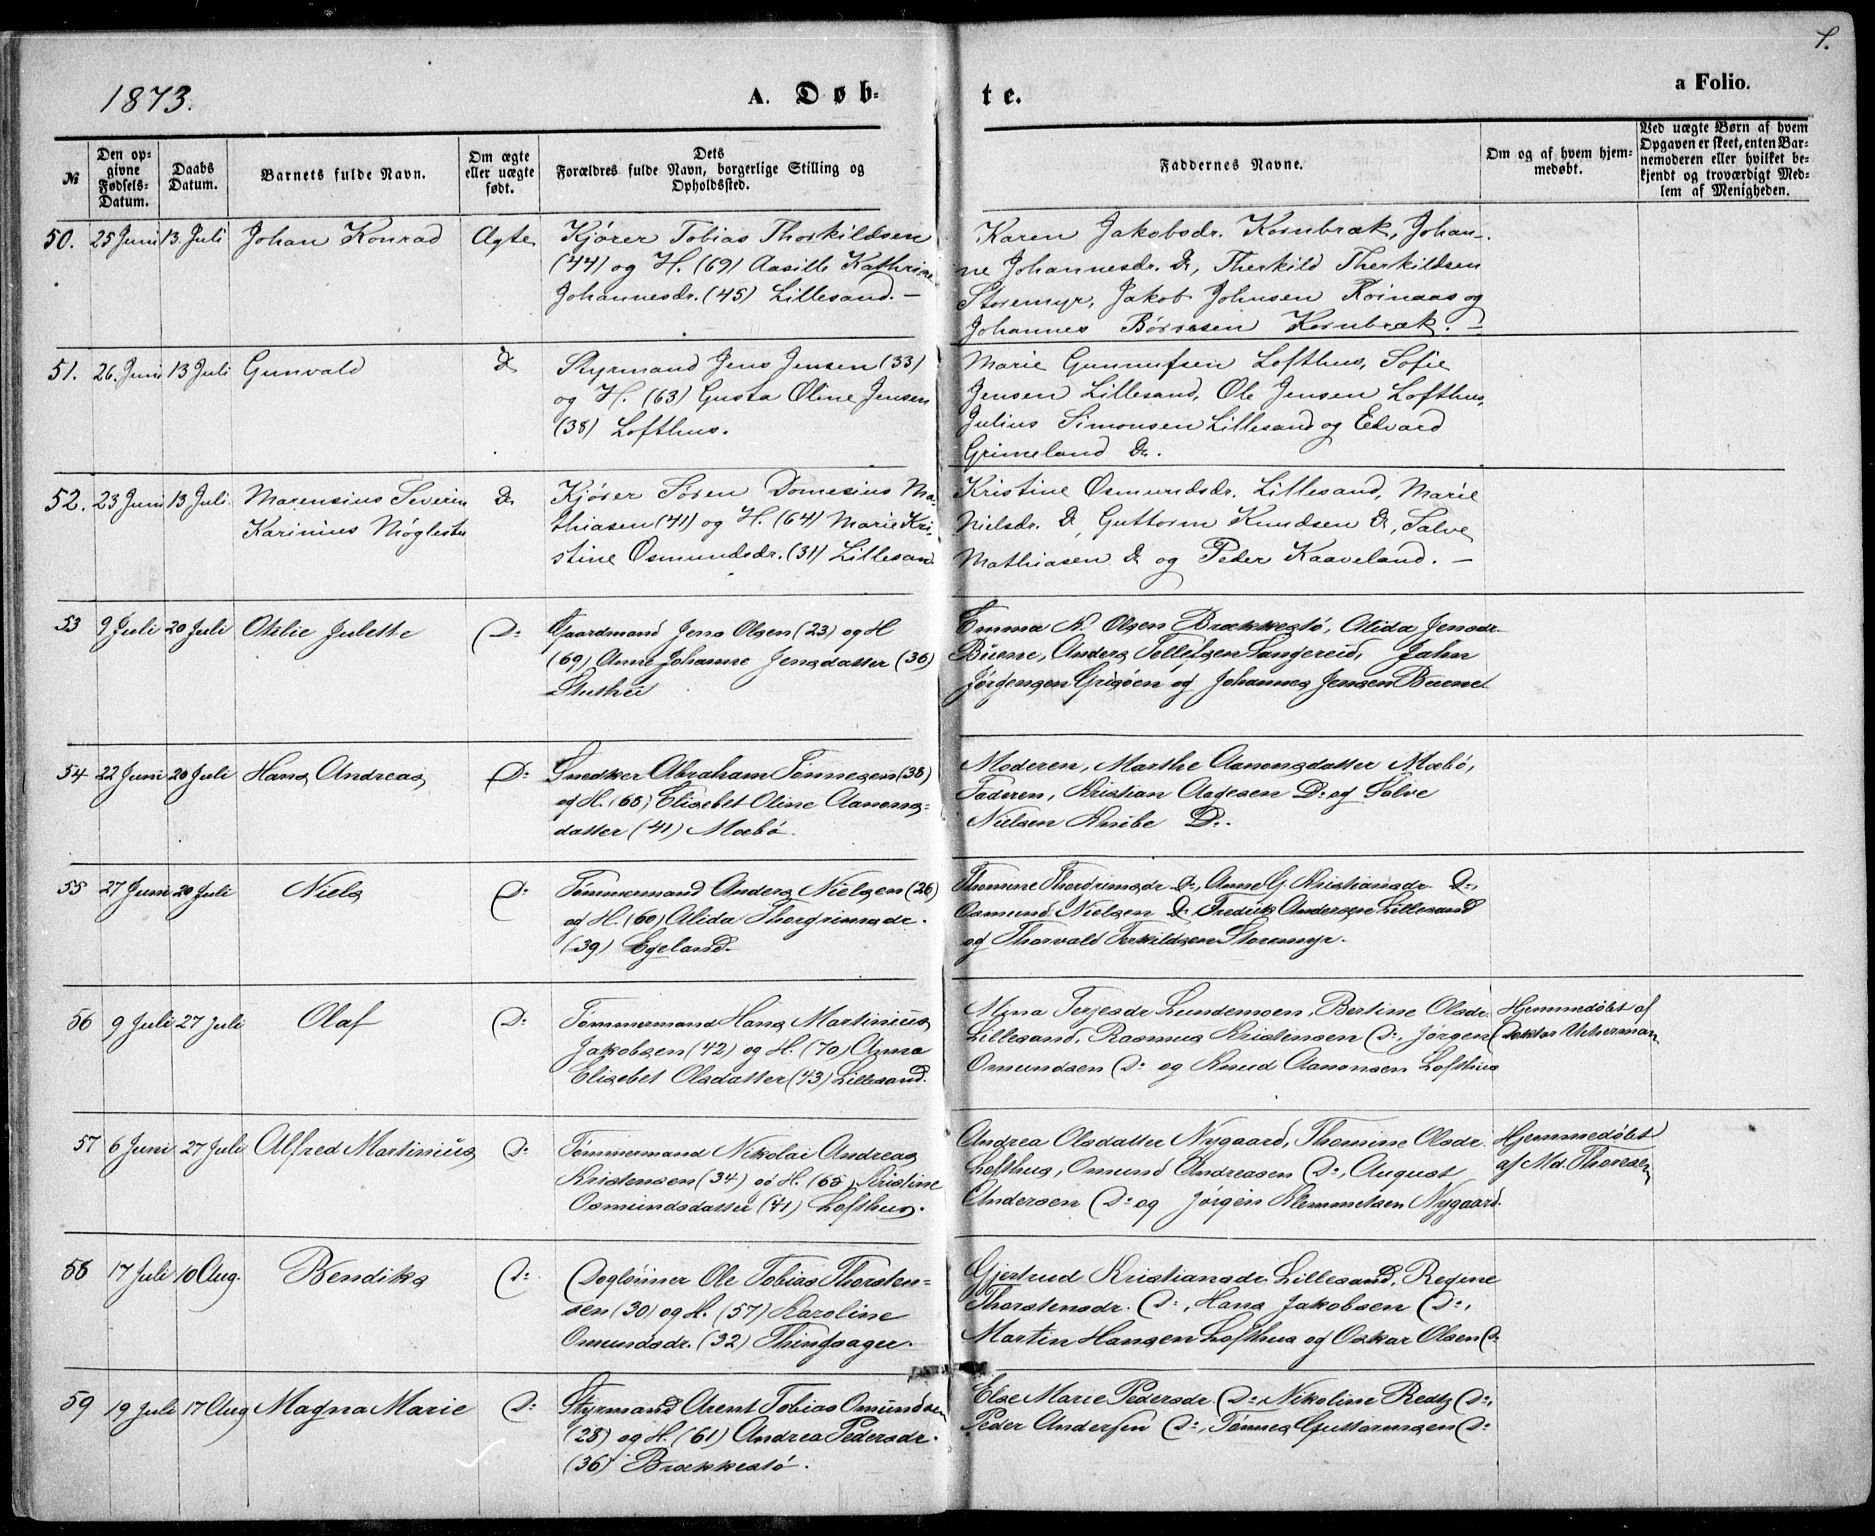 1873.
A. Døb-
te.
a Folio.
1.
№
Den op-
givne
Fødsels-
Datum.
Daabs
Datum.
Barnets fulde Navn.
Om ægte
eller uægte
født.
Dets
Forældres fulde Navn, borgerlige Stilling og
Opholdssted.
Faddernes Navne.
Om og af hvem hjem-
medøbt.
Ved uægte Børn af hvem
Opgaven er skeet, enten Bar-
nemoderen eller hvilket be-
kjendt og troværdigt Med-
lem af Menigheden.
50. 25 Juni 13. Juli Johan Konrad Ægte
Kjører Tobias Thorkildsen
(44) og H. (69) Aasille Kathrine
Johannesdr. (45) Lillesand. —
Karen Jakobsdr. Kornbræk, Johan-
ne Johannesdr. Do, Therkild Therkildsen
Storemyr, Jakob Johnsen Roinaas og
Johannes Børresen Kornbræk. —
51. 26. Juni 13 Juli Gunvald Do
Styrmand Jens Jensen (33)
og H. (63) Gusta Oline Jensen
(38) Lofthus.
Marie Gunnufsen Lofthus, Sofie
Jensen Lillesand, Ole Jensen Lofthus,
Julius Simonsen Lillesand og Edvard
Grimeland Do.
52. 23 Juni 13 Juli. Marensius Severin Do
Karinius Møglestu
Kjører Søren Domesius Ma-
thiasen (41) og H. (64) Marie Kri-
stine Osmundsdr. (31) Lillesand
Kristine Osmundsdr. Lillesand, Marie
Nielsdr. Do, Guttorm Knudsen Do, Salve
Mathiasen Do og Peder Kaaveland. —
53 9 Juli 20 Juli Otilie Julette D:
Gaardmand Jens Olsen (23) og H
(69) Anne Johanne Jensdatter (36)
Stuthei
Emma K. Olsen Brækkestø, Alida Jensdr
Buene, Anders Tellefsen Langereid, Jahn
Jørgensen Grisøen og Johannes Jensen Buene
54 22 Juni 20 Juli Hans Andreas D:
Snedker Abraham Tønnesen (38)
og H. (68) Elisebet Oline Aanons-
datter (41) Mæbø.
Moderen, Marthe Aanonsdatter Mæbø,
Faderen, Kristian Aagesen D: og Salve
Nielsen Knibe D:.
55 27 Juni 20 Juli Niels D:
Tømmermand Anders Nielsen (26)
og H. (60) Alida Thorgrimsdr.
(39) Egeland.
Thomine Thorgrimsdr D:, Anne G. Kristiansdr D:,
Osmund Nielsen D:, Fredrik Andersen Lillesand
og Thorvald Terkildsen Storemyr.
56 9 Juli 27 Juli Olaf D:
Tømmermand Hans Martinius
Jakobsen (42) og H. (70) Anna
Elisebet Olsdatter (43) Lillesand.
Mina Terjesdr Lundemoen, Bertine Olsdr
Lillesand, Rasmus Kristensen D:, Jørgen
Omundsen D: og Knud Aanonsen Lofthus
Hjemmedøbt af
Doktor Ucherman
57 6 Juni 27 Juli Alfred Martinius D:
Tømmermand Nikolai Andreas
Kristensen (34) og H. (68) Kristine
Osmundsdatter (41) Lofthus.
Andrea Olsdatter Nygaard, Thomine Olsdr
Lofthus, Omund Andreasen D:, August
Andersen D: og Jørgen Klemmetsen Nygaard.
Hjemmedøbt
af Md. Thoresen
58 17 Juli 10 Aug. Bendiks D:
Doglønner Ole Tobias Thorsten-
sen (30) og H. (57) Karoline
Omundsdr. (32) Thingsager.
Gjertrud Kristiansdr. Lillesand, Regine
Thorstensdr. D:, Hans Jakobsen D:,
Martin Hansen Lofthus og Oskar Olsen D:
59 19 Juli 17 Aug Magna Marie D:
Styrmand Arent Tobias Omundsen
(28) og H. (61) Andrea Pedersdr.
(36) Brækkestø.
Else Marie Pedersdr. D:, Nikoline Redtz D:,
Peder Andersen D:, Tønnes Guttormsen D: